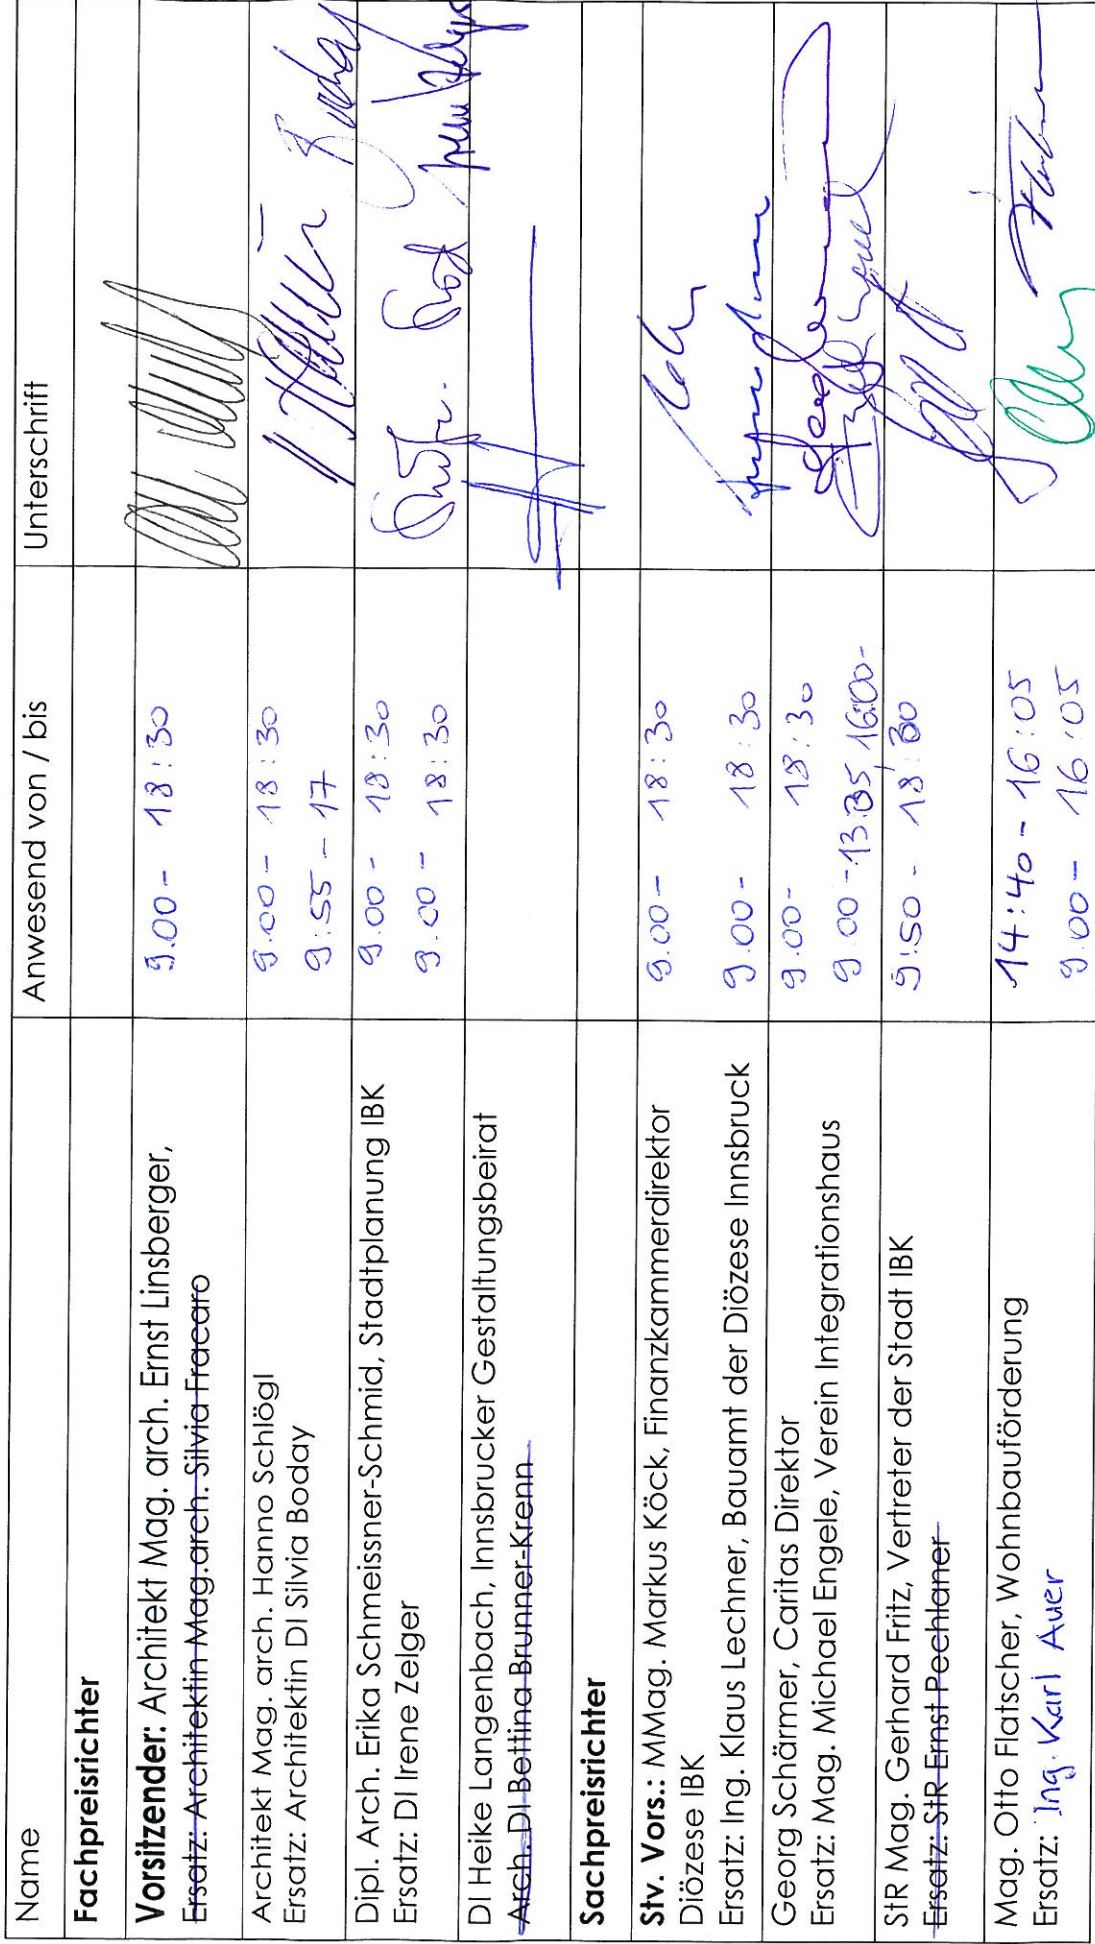 Name Anwesend von / bis Unterschrift
Fachpreisrichter
Vorsitzender: Architekt Mag. arch. Ernst Linsberger, 9.00 - 18:30
Ersatz: Architektin Mag.arch. Silvia Fracaro
Architekt Mag. arch. Hanno Schlögl 9.00 - 18:30
Ersatz: Architektin DI Silvia Boday 9:55 - 17
Dipl. Arch. Erika Schmeissner-Schmid, Stadtplanung IBK 9.00 - 18:30
Ersatz: DI Irene Zelger 9.00 - 18:30
DI Heike Langenbach, Innsbrucker Gestaltungsbeirat
Arch. DI Bettina Brunner-Krenn
Sachpreisrichter
Stv. Vors.: MMag. Markus Köck, Finanzkammerdirektor 9.00 - 18:30
Diözese IBK
Ersatz: Ing. Klaus Lechner, Bauamt der Diözese Innsbruck 9.00 - 18:30
Georg Schärmer, Caritas Direktor 9.00- 18:30
Ersatz: Mag. Michael Engele, Verein Integrationshaus 9.00 - 13.35, 16:00-
StR Mag. Gerhard Fritz, Vertreter der Stadt IBK 9:50 - 18:30
Ersatz: StR Ernst Pechlaner
Mag. Otto Flatscher, Wohnbauförderung 14:40 - 16:05
Ersatz: Ing. Karl Auer 9.00 - 16:05